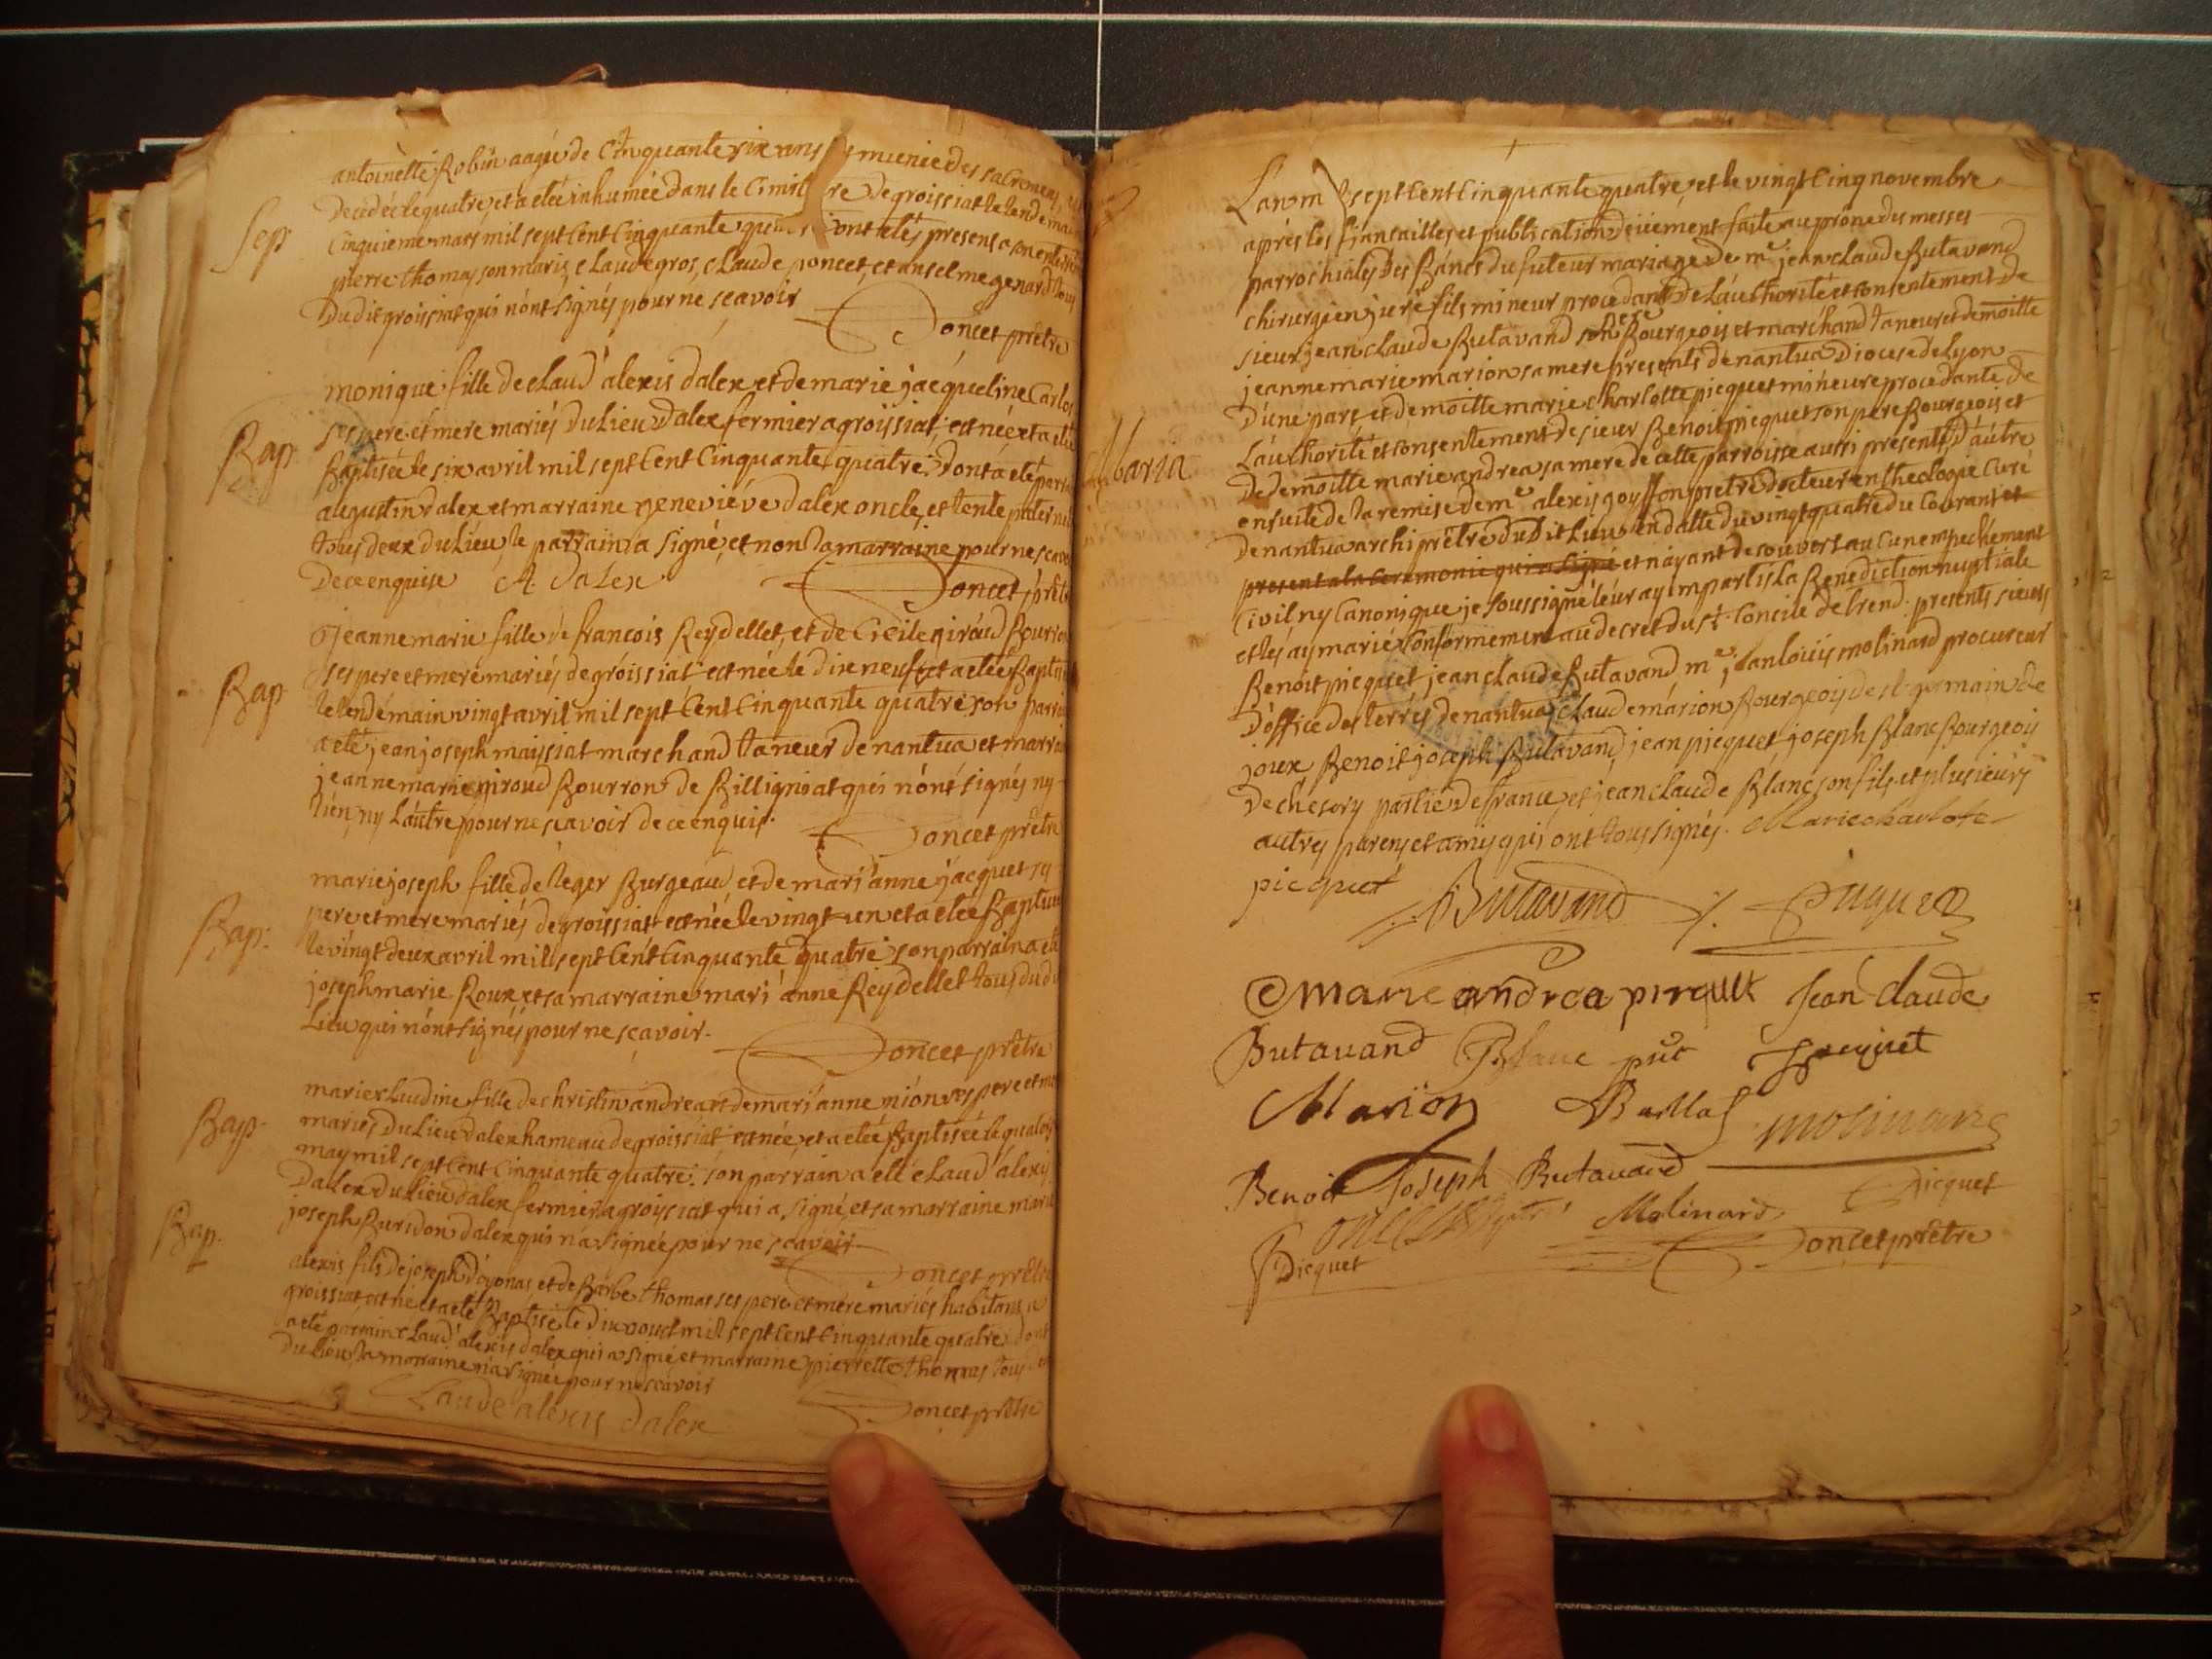 antoinette Robin aagée de Cinquante six ans munie des sacremens
Decedée le quatre, et a etée inhumée dans le Cimitiere de groissiat le lendemain
Sep
Cinquieme mars mil sept Cent Cinquante quatre ont etés presents a son enterrement
pierre thomas son maris, claude gros, claude poncet, et anselme genard tous
Dudit groissiat qui n'ont signés pour ne scavoir
Poncet prêtre
monique fille de claud' alexis dalex et de marie jacqueline Carlos
Bap
ses pere et mere mariés du Lieu dalex fermier a groissiat, est née et a etée
Baptisée le six avril mil sept Cent Cinquante quatre, dont a eté parrain
augustin dalex et marraine genevieve dalex oncle, et tente paternels
tous deux du Lieu le parrain a signé, et non la marraine pour ne scavoir
De ce enquise A. Dalex Poncet prêtre
jeanne marie fille de francois Reydellet, et de Cecile giraud Bourron
Bap
ses pere et mere mariés de groissiat est née le dix neuf et a etée Baptisée
le lendemain vingt avril mil sept Cent Cinquante quatre son parrain
a eté jean joseph maissiat marchand taneur de nantua et marraine
jeanne marie giraud Bourron de Billigniat qui n'ont signés ny
l'un, ny L'autre pour ne scavoir de ce enquis.
Poncet prêtre
marie joseph fille de leger Burgeaud et de mari' anne jacquet ses
Bap.
pere et mere mariés de groissiat est née le vingt un et a etée Baptisée
le vingt deux avril mil sept Cent Cinquante quatre son parrain a eté
joseph marie Roux et sa marraine mari' anne Reydellet tous dudit
Lieu qui n'ont signés pour ne scavoir.
Poncet prêtre
marie claudine fille de christin andrea et de mari' anne mion ses pere et mere
Bap.
mariés du Lieu dalex hameau de groissiat est née, et a etée Baptisée le
may mil sept Cent Cinquante quatre: son parrain a eté claud' alexis
Dalex du Lieu dalex fermier a groissiat qui a signé, et sa marraine marie
joseph Buridon dalex qui n'a signée pour ne scavoir
Poncet prêtre
Bap.
alexis fils de joseph d'oyonas, et de Barbe thomas ses pere et mere mariés habitans a
groissiat est né et a eté Baptisé le dix aout mil sept Cent Cinquante quatre dont
a eté parrain claud' alexis dalex qui a signé et marraine pierrette thomas tous
du Lieu la marraine n'a signée pour ne scavoir
Claude alexis dalex Poncet prêtre
L'an mil sept Cent Cinquante quatre, et le vingt Cinq novembre
aprés les fiançailles et publication düement faite au prône des messes
parrochiales Des Bancs du futeur mariage De me jean claude Butavand
chirurgien juré fils mineur procedant De L'authorité et consentement de
sieur jean claude Butavand son pere Bourgeois et marchand taneur et demoille
jeanne marie marion sa mere presents de nantua Diocese de Lyon
D'une part et demoille marie charlotte picquet mineure procedante de
L'authorité et consentement de sieur Benoit picquet son pere Bourgeois et
Maria
De demoille marie andrea sa mere de cette parroisse aussi presents d'autre
ensuite de la remise de me alexis goyffon prêtre docteur en theologie curé
de nantua archiprêtre dudit Lieu en datte du vingt quatre du Courant et
present a la ceremonie qui a signé et n'ayant decouvert aucun empechement
Civil ny Canonique je soussigné leur ay imparti La Benediction nuptiale
et les ay marié conformement au decret du st Concile de trend: presents sieurs
Benoit picquet jean claude Butavand me jean louis molinard procureur
D'office des terres de nantua, claude marion Bourgeois de st germain de
joux, Benoit joseph Butavand, jean picquet joseph Blanc Bourgeois
De chesery partie de france, et jean claude Blanc son fils, et plusieurs
autres parens et amis qui ont tous signés. Marie charlote
picquet Butavand Picquet
marie andrea picquet Jean Claude
Butavand Blanc Jpicquet
Marion Baillat molinard
Benoit Joseph Butavand
Molinard Picquet
Picquet Poncet prêtre